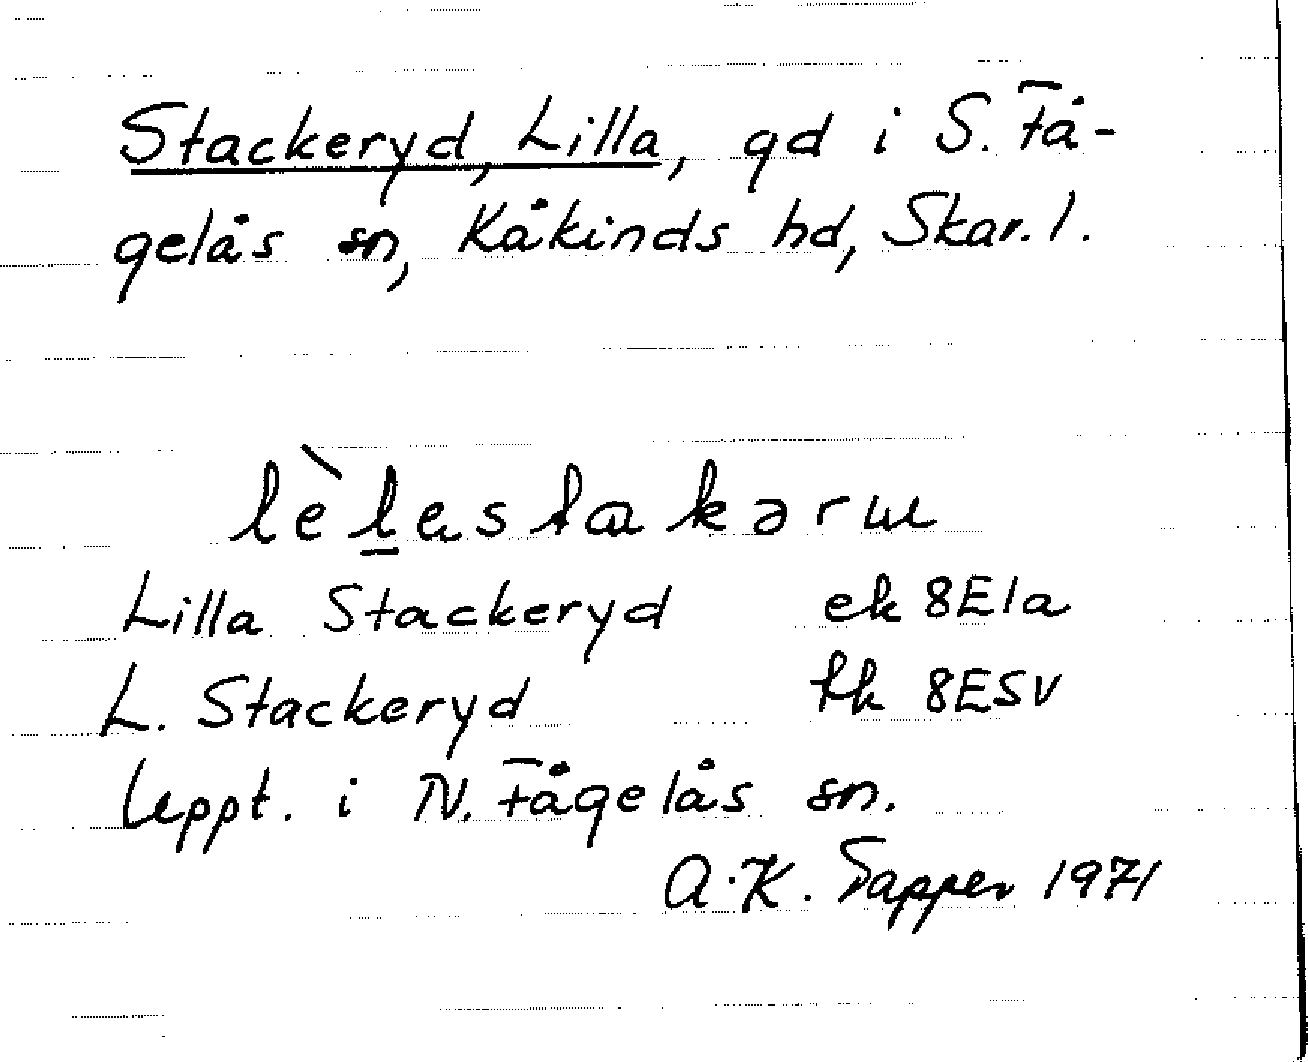 Stackeryd, Lilla, gd i S. Få-
gelås sn, Kåkinds hd, Skar. l.
Lilla Stackeryd ek 8E1a
L. Stackeryd tk 8ESV
Uppt. i N. Fågelås sn.
A.K. Tapper 1971